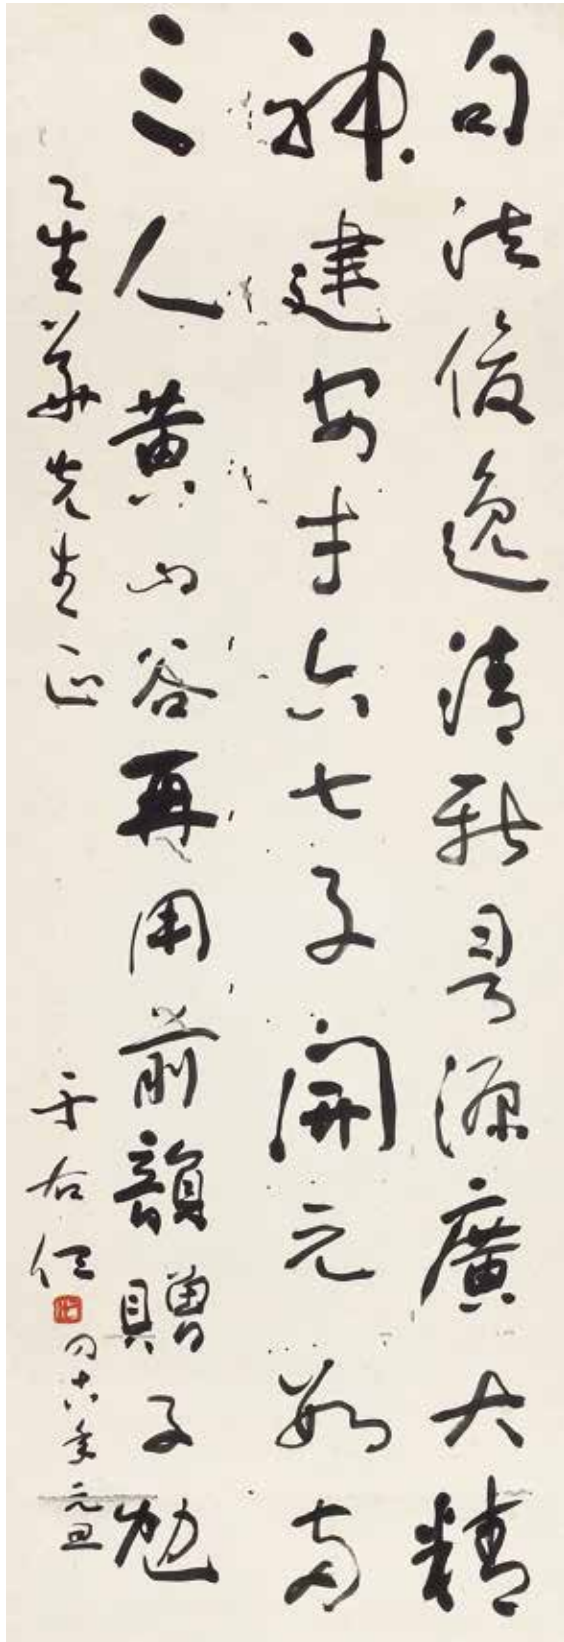 句法俊逸清新詞源廣大精
神建安才六七子開元數兩
三人黃山谷再用前韻贈子勉
華先生正
于右任
四十六年元旦